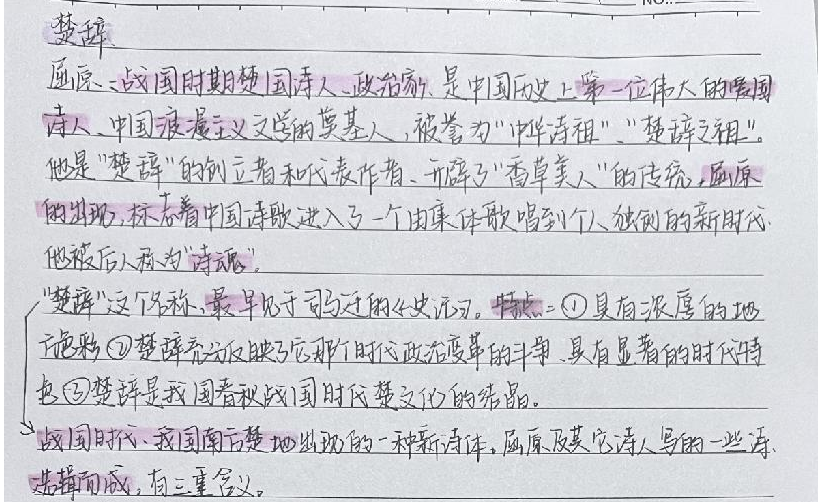 NO.:
楚辞
屈原:战国时期楚国诗人、政治家,是中国历史上第一位伟大的爱国
诗人、中国浪漫主义文学的奠基人,被誉为“中华诗祖”、“楚辞之祖”。
他是“楚辞”的创立者和代表作者、开辟了“香草美人”的传统,屈原
的出现,标志着中国诗歌进入了一个由集体歌唱到个人独创的新时代.
他被后人称为“诗魂”。
“楚辞”这个名称,最早见于司马迁的《史记》。特点:①具有浓厚的地
方色彩②楚辞充分反映了它那个时代政治变革的斗争、具有显著的时代特
色③楚辞是我国春秋战国时代楚文化的结晶。
战国时代、我国南方楚地出现的一种新诗体。屈原及其它诗人写的一些诗.
选辑而成,有三重含义。